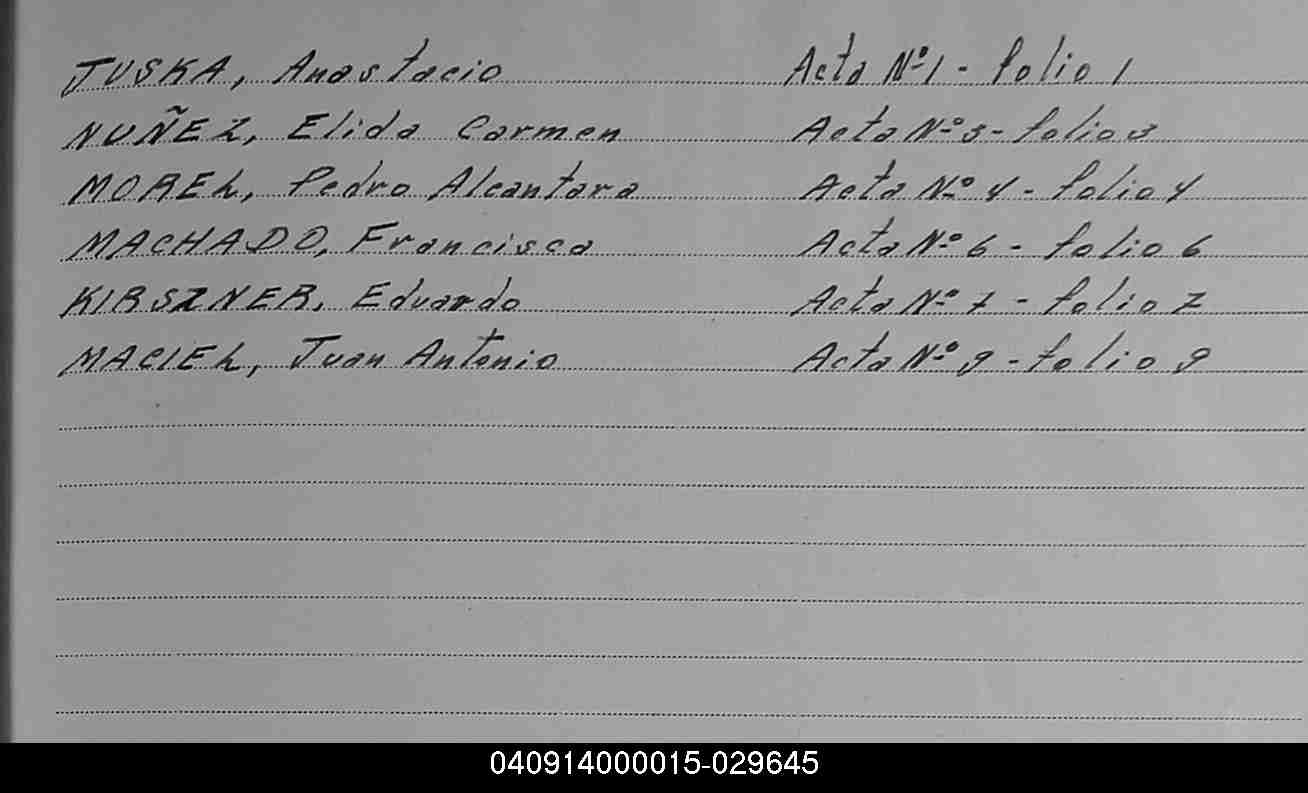 JUSKA, Anastacio Acta Nº 1 - folio 1
NUÑEZ, Elida Carmen Acta Nº 3 - folio 3
MOREL, Pedro Alcantara Acta Nº 4 - folio 4
MACHADO, Francisca Acta Nº 6 - folio 6
KIRSZNER, Eduardo Acta Nº 7 - folio 7
MACIEL, Juan Antonio Acta Nº 9 - folio 9
040914000015-029645